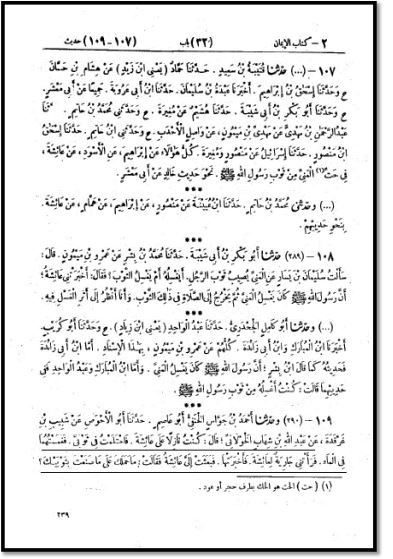 ٢ - كتاب الإيمان (٣٢) باب (١٠٧-١٠٩) حديث
١٠٧ - (...) حدثنا قُتَيْبَةُ بْنُ سَعِيدٍ. حَدَّثَنَا حَمَّادٌ (يَعْنِي ابْنَ زَيْدٍ) عَنْ هِشَامِ بْنِ حَسَّانَ
ح وَحَدَّثَنَا إِسْحَقُ بْنُ إِبْرَاهِيمَ. أَخْبَرَنَا عَبْدَةُ بْنُ سُلَيْمَانَ. حَدَّثَنَا ابْنُ أَبِي عَرُوبَةَ. جَمِيعًا عَنْ أَبِي مَعْشَرٍ.
ح وَحَدَّثَنَا أَبُو بَكْرِ بْنُ أَبِي شَيْبَةَ. حَدَّثَنَا هُشَيْمٌ عَنْ مُغِيرَةَ. ح وَحَدَّثَنِي مُحَمَّدُ بْنُ حَاتِمٍ. ثنا
عَبْدُ الرَّحْمٰنِ بْنُ مَهْدِيٍّ عَنْ مَهْدِيِّ بْنِ مَيْمُونٍ، عَنْ وَاصِلٍ الْأَحْدَبِ. ح وَحَدَّثَنِي ابْنُ حَاتِمٍ. حَدَّثَنَا إِسْحَقُ
ابْنُ مَنْصُورٍ. حَدَّثَنَا إِسْرَائِيلُ عَنْ مَنْصُورٍ وَمُغِيرَةَ. كُلُّ هَؤُلَاءِ عَنْ إِبْرَاهِيمَ، عَنِ الْأَسْوَدِ، عَنْ عَائِشَةَ،
فِي حَتِّ(١) الْمَنِيِّ مِنْ ثَوْبِ رَسُولِ اللهِ ﷺ. نَحْوَ حَدِيثِ خَالِدٍ عَنْ أَبِي مَعْشَرٍ.
***
(...) وحدثني مُحَمَّدُ بْنُ حَاتِمٍ. حَدَّثَنَا ابْنُ عُيَيْنَةَ عَنْ مَنْصُورٍ، عَنْ إِبْرَاهِيمَ، عَنْ هَمَّامٍ، عَنْ عَائِشَةَ.
بِنَحْوِ حَدِيثِهِمْ.
***
١٠٨ - (٢٨٩) حدثنا أَبُو بَكْرِ بْنُ أَبِي شَيْبَةَ. حَدَّثَنَا مُحَمَّدُ بْنُ بِشْرٍ عَنْ عَمْرِو بْنِ مَيْمُونٍ. قَالَ:
سَأَلْتُ سُلَيْمَانَ بْنَ يَسَارٍ عَنِ الْمَنِيِّ يُصِيبُ ثَوْبَ الرَّجُلِ. أَيَغْسِلُهُ أَمْ يَغْسِلُ الثَّوْبَ؟ فَقَالَ: أَخْبَرَتْنِي عَائِشَةُ؛
أَنَّ رَسُولَ اللهِ ﷺ كَانَ يَغْسِلُ الْمَنِيَّ ثُمَّ يَخْرُجُ إِلَى الصَّلَاةِ فِي ذٰلِكَ الثَّوْبِ. وَأَنَا أَنْظُرُ إِلَى أَثَرِ الْغَسْلِ فِيهِ.
***
(...) وحدثنا أَبُو كَامِلٍ الْجَحْدَرِيُّ. حَدَّثَنَا عَبْدُ الْوَاحِدِ (يَعْنِي ابْنَ زِيَادٍ). ح وَحَدَّثَنَا أَبُو كُرَيْبٍ.
أَخْبَرَنَا ابْنُ الْمُبَارَكِ وَابْنُ أَبِي زَائِدَةَ. كُلُّهُمْ عَنْ عَمْرِو بْنِ مَيْمُونٍ، بِهٰذَا الْإِسْنَادِ. أَمَّا ابْنُ أَبِي زَائِدَةَ
فَحَدِيثُهُ كَمَا قَالَ ابْنُ بِشْرٍ؛ أَنَّ رَسُولَ اللهِ ﷺ كَانَ يَغْسِلُ الْمَنِيَّ. وَأَمَّا ابْنُ الْمُبَارَكِ وَعَبْدُ الْوَاحِدِ فَفِي
حَدِيثِهِمَا قَالَتْ: كُنْتُ أَغْسِلُهُ مِنْ ثَوْبِ رَسُولِ اللهِ ﷺ.
***
١٠٩ - (٢٩٠) وحدثنا أَحْمَدُ بْنُ جَوَّاسٍ الْحَنَفِيُّ أَبُو عَاصِمٍ. حَدَّثَنَا أَبُو الْأَحْوَصِ عَنْ شَبِيبِ بْنِ
غَرْقَدَةَ، عَنْ عَبْدِ اللهِ بْنِ شِهَابٍ الْخَوْلَانِيِّ؛ قَالَ: كُنْتُ نَازِلًا عَلَى عَائِشَةَ. فَاحْتَلَمْتُ فِي ثَوْبَيَّ. فَغَمَسْتُهُمَا
فِي الْمَاءِ. فَرَأَتْنِي جَارِيَةٌ لِعَائِشَةَ. فَأَخْبَرَتْهَا. فَبَعَثَتْ إِلَيَّ عَائِشَةُ فَقَالَتْ: مَا حَمَلَكَ عَلَى مَا صَنَعْتَ بِثَوْبَيْكَ؟
(١) (حت) الحت هو الحك بطرف حجر أو عود.
٢٣٩